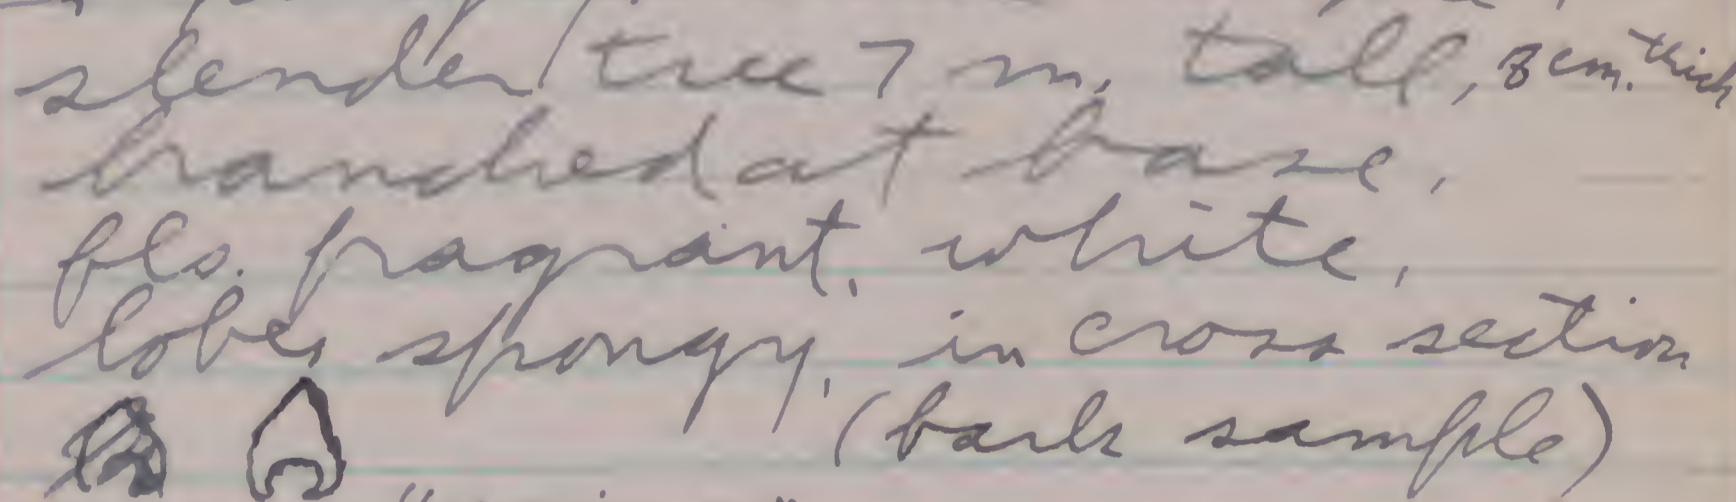 slender tree 7 m. tall, 8 cm. thick
branched at base,
fls. fragrant, white,
lobes spongy, in cross section
(bark sample)